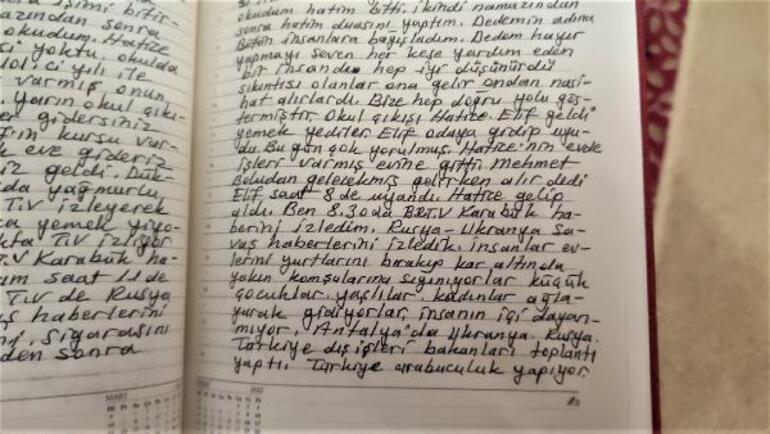 işimi bitir-
azından sonra
okudum. Hatice
çi yoktu, okulda
101.ci yılı ile
varmış onun
. Yarın okul çıkı-
er gidersiniz
kursu var-
k eve gideriz
iz geldi. Dük-
da yağmurlu
T.V izleyerek
ca yemek yiyo-
kta T.V izliyor
T.V Karabük ha-
am saat 11 de
T.V de Rusya
ş haberlerini
Sigarasını
den sonra
okudum hatim bitti. ikindi namazından
sonra hatim duasını yaptım. Dedemin adına
Bütün insanlara bağışladım. Dedem hayır
yapmayı seven her keşe yardım eden
bir insandı hep iyi düşünürdü
sıkıntısı olanlar ona gelir ondan nasi-
hat alırlardı. Bize hep doğru yolu gös-
termiştir. Okul çıkışı Hatice. Elif geldi
yemek yediler. Elif odaya gidip uyu-
du. Bu gün çok yorulmuş. Hatice'nin evde
işleri varmış evine gitti. Mehmet
Boludan gelecekmiş gelirken alır dedi
Elif saat 8 de uyandı. Hatice gelip
aldı. Ben 8.30 da B.R.T.V Karabük ha-
berini izledim. Rusya-Ukranya Sa-
vaş haberlerini izledik. insanlar ev-
lerini yurtlarını bırakıp kar altında
yakın komşularına sığınıyorlar küçük
çocuklar. yaşlılar. kadınlar ağla-
yarak gidiyorlar. insanın içi dayan-
mıyor. Antalya'da Ukranya. Rusya.
Türkiye dış işleri bakanları toplantı
yaptı. Türkiye arabuculuk yapıyor.
MART